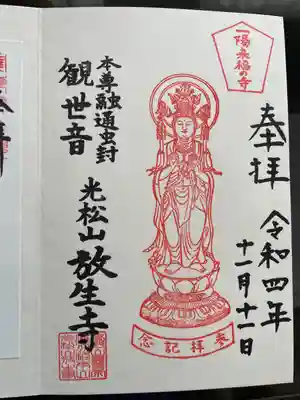 一陽来福の寺
奉拝
令和四年
十一月十一日
参拝記念
本尊融通虫封
観世音
光松山放生寺